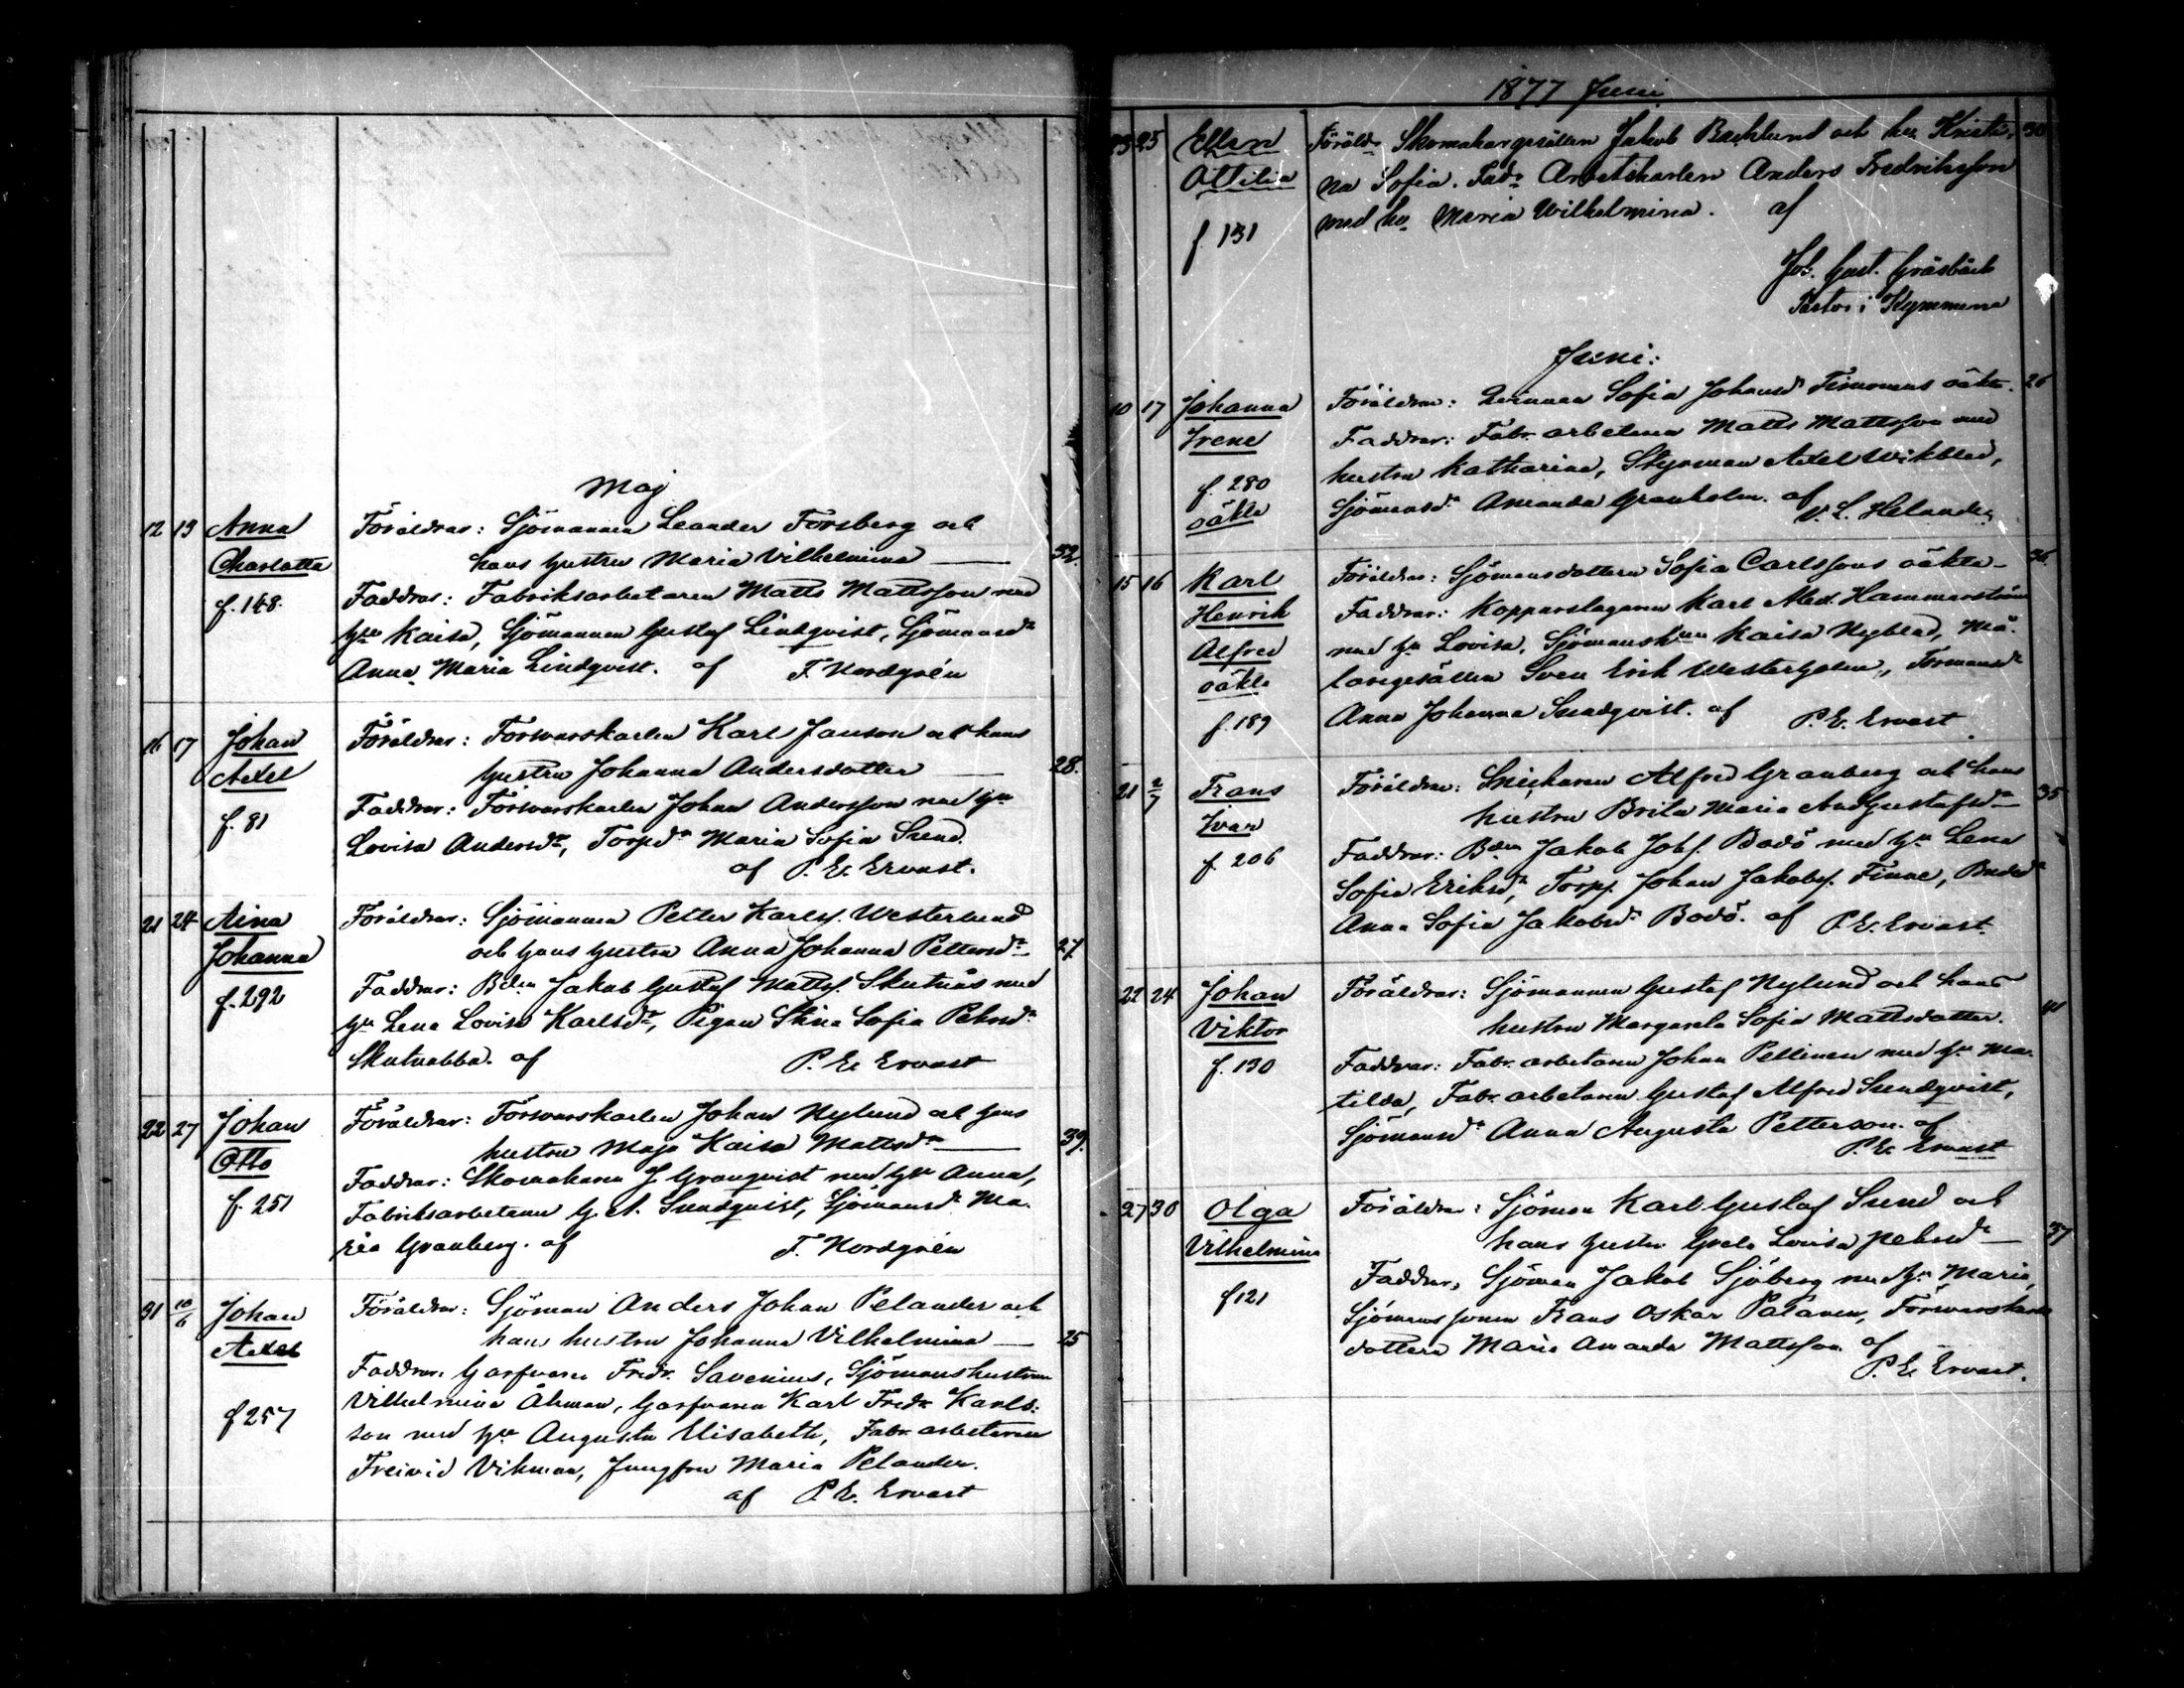 Maj
12 19 Anna Föräldrar: Sjömannen Leander Forsberg och
Charlotta hans hustru Maria Vilhelmina — 32.
f. 148. Faddrar: Fabriksarbetaren Matts Mattsson med
hu Kaisa, Sjömannen Gustaf Lindqvist, Sjömansdr
Anna Maria Lindqvist. af F. Nordgrén
16 17 Johan Föräldrar: Forswarskarlen Karl Janson och hans
Axel hustru Johanna Andersdotter — 28.
f. 81 Faddrar: Forswarskarlen Johan Andersson med hu
Lovisa Andersdr, Torpdr Maria Sofia Sund.
af P. E. Ervast.
21 24 Aina Föräldrar: Sjömannen Petter Karls. Westerlund
Johanna och hans hustru Anna Johanna Pettersdr 27.
f. 292 Faddrar: Bden Jakob Gustaf Matts. Skutnäs med
hu Lena Lovisa Karlsdr, Pigan Stina Sofia Pehrsdr
Skutnabba. af P. E. Ervast
22 27 Johan Föräldrar: Förswarskarlen Johan Nylund och hans
Otto hustru Maja Kaisa Mattsdr — 39.
f. 251 Faddrar: Skomakaren J. Granqvist med hu Anna,
Fabriksarbetaren G. A. Sundqvist, Sjömansdr Ma-
ria Granberg. af F. Nordgrén
31 10/6 Johan Föräldrar: Sjöman Anders Johan Pelander och
Axel hans hustru Johanna Vilhelmina — 25
Faddrar: Garfvaren Fredr. Savenius, Sjömanshustrun
f 257 Vilhelmina Åhman, Garfvaren Karl Fredr. Karls-
son med hu Augusta Elisabeth, Fabr. arbetaren
Freivid Vikman, Jungfru Maria Pelander.
af P. E. Ervast
1877 Juni
23 25 Ellen Föräldr Skomakargesällen Jakob Backlund och hu Kristi- 30
Ottilia na Sofia. Fadr Arbetskarlen Anders Fredriksson
f. 131 med hu Maria Wilhelmina. af
Joh. Gust. Gräsbäck
Pastor i Kymmene
Juni:
10 17 Johanna Föräldrar: Sofia Johansdr oäkta. 26
Irene Faddrar: Fabr. arbetaren Matts Mattsson med
f. 280 hustru Katharina, Styrman Axel Wikblad,
oäkta Sjömansdr Amanda Granholm. af V. L. Helander
15 16 Karl Föräldrar: Sjömansdottern Sofia Carlssons oäkta— 36.
Henrik Faddrar: Kopparslagaren Karl Alex. Hammarström
Alfred med hu Lovisa, Sjömanskun Kaisa Nyblad, Må-
oäkta laregesällen Sven Erik Westerholm, Formansdr
f. 189 Anna Johanna Sundqvist. af P. E. Ervast
21 2/7 Frans Föräldrar: Snickaren Alfred Granberg och hans
Ivar hustru Brita Maria And.Gustafsdr 35
f. 206 Faddrar: Bden Jakob Johs. Bodö med hu Lena
Sofia Eriksdr, Torp. Johan Jakobs. Finne, Bndedr
Anna Sofia Jakobsdr Bodö. af P. E. Ervast.
22 24 Johan Föräldrar: Sjömannen Gustaf Nylund och hans
Viktor hustru Margareta Sofia Mattsdotter. 41
f. 130 Faddrar: Fabr. arbetaren Johan Pellinen med hu Ma-
tilda, Fabr. arbetaren Gustaf Alfred Sundqvist,
Sjömansdr Anna Augusta Petterson. af
P. E. Ervast
27 30 Olga Föräldrar: Sjöman Karl Gustaf Sund och
Vilhelmina hans hustru Greta Lovisa Pehrsdr — 37
f 121 Faddrar, Sjöman Jakob Sjöberg med hu Maria,
Sjömanssonen Frans Oskar Palanen, Förswarskarls
dottern Maria Amanda Mattsson af
P. E. Ervast.